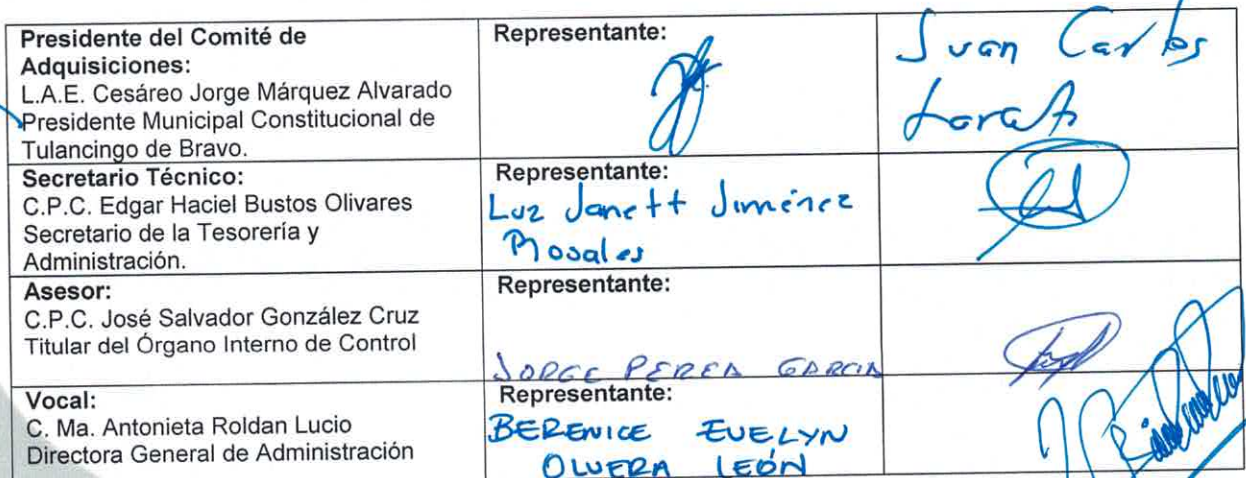 Presidente del Comité de
Adquisiciones:
L.A.E. Cesáreo Jorge Márquez Alvarado
Presidente Municipal Constitucional de
Tulancingo de Bravo.
Representante:
Juan Carlos
Secretario Técnico:
C.P.C. Edgar Haciel Bustos Olivares
Secretario de la Tesorería y
Administración.
Representante:
Luz Janett Jiménez
Rosales
Asesor:
C.P.C. José Salvador González Cruz
Titular del Órgano Interno de Control
Representante:
JORGE PEREA GARCIA
Vocal:
C. Ma. Antonieta Roldan Lucio
Directora General de Administración
Representante:
BERENICE EVELYN
OLVERA LEÓN